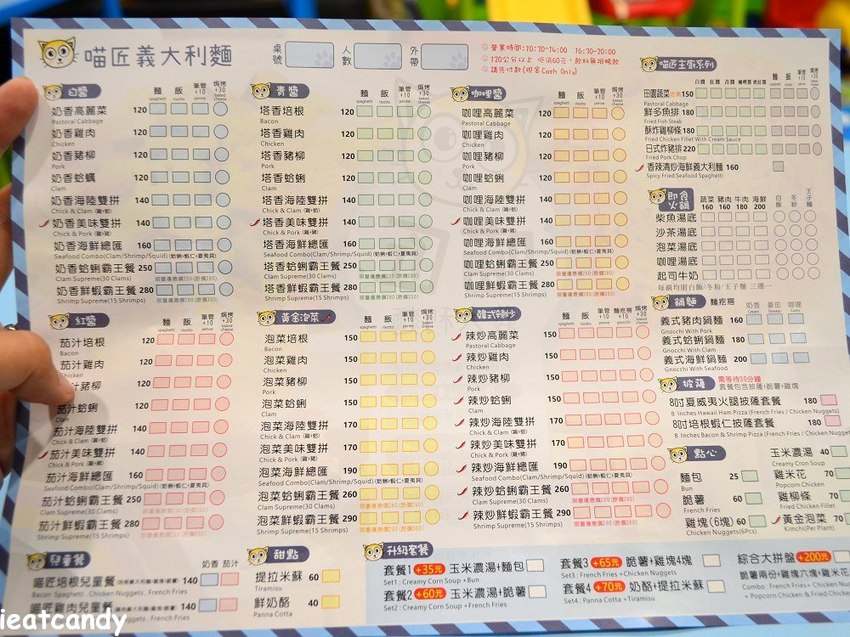 喵匠義大利麵
桌號
人數
外帶
營業時間:10:30-14:00 16:30-20:00
(限客Cash Only)
白醬 麵 飯 筆管+10 焗烤+30
spaghetti rice penne baked cheese
奶香高麗菜 120
Pastoral Cabbage
奶香雞肉 120
Chicken
奶香豬柳 120
Pork
奶香蛤蠣 120
Clam
奶香海陸雙拼 140
Chick & Clam (雞+蛤)
奶香美味雙拼 140
Chick & Pork
奶香海鮮總匯 160
Seafood Combo(Clam/Shrimp/Squid)
奶香蛤蜊霸王餐 250
Clam Supreme(30 Clams)
奶香鮮蝦霸王餐 280
Shrimp Supreme(15 Shrimps)
青醬 麵 飯 筆管+10 焗烤+30
塔香培根 120
Bacon
塔香雞肉 120
Chicken
塔香豬柳 120
Pork
塔香蛤蜊 120
Clam
塔香海陸雙拼 140
Chick & Clam (雞+蛤)
塔香美味雙拼 140
Chick & Pork
塔香海鮮總匯 160
Seafood Combo(Clam/Shrimp/Squid)
塔香蛤蜊霸王餐 250
Clam Supreme(30 Clams)
塔香鮮蝦霸王餐 280
Shrimp Supreme(15 Shrimps)
咖哩醬 麵 飯 筆管+10 焗烤+30
咖哩高麗菜 120
Pastoral Cabbage
咖哩雞肉 120
Chicken
咖哩豬柳 120
Pork
咖哩蛤蜊 120
Clam
咖哩海陸雙拼 140
Chick & Clam (雞+蛤)
咖哩美味雙拼 140
Chick & Pork
咖哩海鮮總匯 160
Seafood Combo(Clam/Shrimp/Squid)
咖哩蛤蜊霸王餐 250
Clam Supreme(30 Clams)
咖哩鮮蝦霸王餐 280
Shrimp Supreme(15 Shrimps)
喵匠主廚系列
田園蔬菜 150
Pastoral Cabbage
鮮多魚排 180
Fried Fish Steak
酥炸雞柳條 180
Fried Chicken Fillet With Cream Sauce
日式炸豬排 220
Fried Pork Chop
香辣清炒海鮮義大利麵 160
Spicy Fried Seafood Spaghetti
即食火鍋 蔬菜160 豬肉160 牛肉180 海鮮200 白飯 冬粉 王子麵
柴魚湯底
沙茶湯底
泡菜湯底
咖哩湯底
起司牛奶
每鍋均附白飯/冬粉/王子麵 三選一
鍋麵 麵疙瘩 奶香 茄汁 咖哩
義式豬肉鍋麵 160
Gnocchi With Pork
義式蛤蜊鍋麵 180
Gnocchi With Clam
義式海鮮鍋麵 200
Gnocchi With Seafood
披薩 需等待30分鐘
套餐包含披薩/脆薯/雞塊
8吋夏威夷火腿披薩套餐 180
8 Inches Hawaii Ham Pizza (French Fries / Chicken Nuggets)
8吋培根蝦仁披薩套餐 180
8 Inches Bacon & Shrimp Pizza (French Fries / Chicken Nuggets)
點心
麵包 25
Bun
脆薯 60
French Fries
雞塊(6塊) 60
Chicken Nuggets(6Pcs)
玉米濃湯 40
Creamy Corn Soup
雞米花 70
Popcorn Chicken
雞柳條 70
Fried Chicken Fillet
黃金泡菜 70
Kimchi(Per Plant)
紅醬 麵 飯 筆管+10 焗烤+30
茄汁培根 120
Bacon
茄汁雞肉 120
Chicken
汁豬柳 120
茄汁蛤蜊 120
茄汁海陸雙拼 140
Chick & Clam (雞+蛤)
茄汁美味雙拼 140
Chick & Pork
茄汁海鮮總匯 160
Seafood Combo(Clam/Shrimp/Squid)
茄汁蛤蜊霸王餐 250
Clam Supreme(30 Clams)
茄汁鮮蝦霸王餐 280
Shrimp Supreme(15 Shrimps)
黃金泡菜 麵 飯 筆管+10 焗烤+30
泡菜培根 150
Bacon
泡菜雞肉 150
Chicken
泡菜豬柳 150
Pork
泡菜蛤蜊 150
Clam
泡菜海陸雙拼 170
Chick & Clam
泡菜美味雙拼 170
Chick & Pork
泡菜海鮮總匯 170
Seafood Combo(Clam/Shrimp/Squid)
泡菜蛤蜊霸王餐 260
Clam Supreme(30 Clams)
泡菜鮮蝦霸王餐 290
Shrimp Supreme(15 Shrimps)
韓式辣炒 麵 飯
辣炒高麗菜 150
Pastoral Cabbage
辣炒雞肉 150
Chicken
辣炒豬柳 150
Pork
辣炒蛤蜊 150
Clam
辣炒海陸雙拼 170
Chick & Clam
辣炒美味雙拼 170
Chick & Pork
辣炒海鮮總匯 170
Seafood Combo(Clam/Shrimp/Squid)
辣炒蛤蜊霸王餐 260
Clam Supreme(30 Clams)
辣炒鮮蝦霸王餐 290
Shrimp Supreme(15 Shrimps)
兒童餐 奶香 茄汁
喵匠培根兒童餐 140
Bacon Spaghetti, French Fries
喵匠雞肉兒童餐 140
甜點
提拉米蘇 60
Tiramisu
鮮奶酪 40
Panna Cotta
升級套餐
套餐1 +35元 玉米濃湯+麵包
Set1 : Creamy Corn Soup + Bun
套餐2 +60元 玉米濃湯+脆薯
Set2 : Creamy Corn Soup + French Fries
套餐3 +65元 脆薯+雞塊4塊
Set3 : French Fries + Chicken Nuggets
套餐4 +70元 奶酪+提拉米蘇
Set4 : Panna Cotta + Tiramisu
綜合大拼盤 +200元
脆薯兩份+雞塊六塊+雞米花
Combo : French Fries + Chicken Nuggets
+ Popcorn Chicken & Fried Chicken
ieatcandy